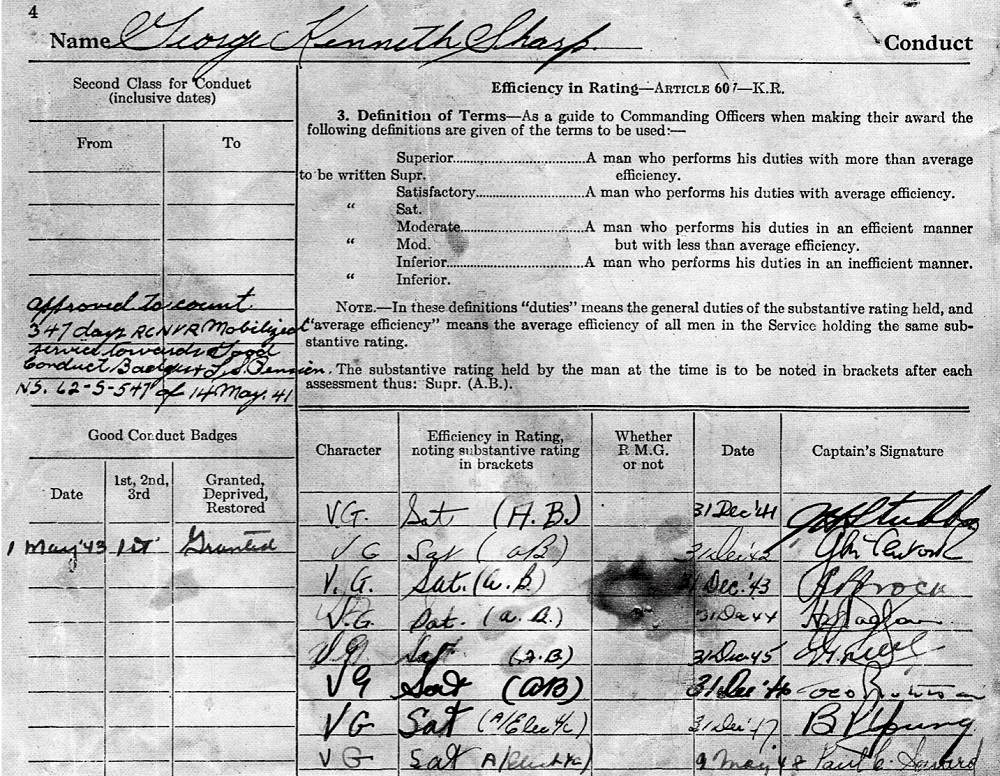 4
Name George Kenneth Sharp. Conduct
Second Class for Conduct
(inclusive dates)
From To
approved to count
347 days RCNVR Mobilized
service towards Good
Conduct Badges & L.S. Pension.
N.S. 62-S-547 of 14 May. 41
Good Conduct Badges
Date
1st, 2nd,
3rd
Granted,
Deprived,
Restored
1 May '43 1st Granted
Efficiency in Rating—ARTICLE 607—K.R.
3. Definition of Terms—As a guide to Commanding Officers when making their award the
following definitions are given of the terms to be used:—
Superior..........................A man who performs his duties with more than average
to be written Supr. efficiency.
Satisfactory......................A man who performs his duties with average efficiency.
“ Sat.
Moderate.........................A man who performs his duties in an efficient manner
“ Mod. but with less than average efficiency.
Inferior...........................A man who performs his duties in an inefficient manner.
“ Inferior.
NOTE.—In these definitions "duties" means the general duties of the substantive rating held, and
"average efficiency" means the average efficiency of all men in the Service holding the same sub-
stantive rating.
The substantive rating held by the man at the time is to be noted in brackets after each
assessment thus: Supr. (A.B.).
Character
Efficiency in Rating,
noting substantive rating
in brackets
Whether
R.M.G.
or not
Date
Captain's Signature
V.G. Sat (A.B.) 31 Dec '41 Stubbs
V G Sat (AB) 31 Dec '42
V. G. Sat. (A.B) 31 Dec. '43
V.G Sat. (A.B.) 31 Dec 44
VG Sat (A.B) 31 Dec 45
VG Sat (AB) 31 Dec '46
VG Sat (A/Elec 4/c) 31 Dec '47 B P Young
VG Sat 9 May 48 Paul